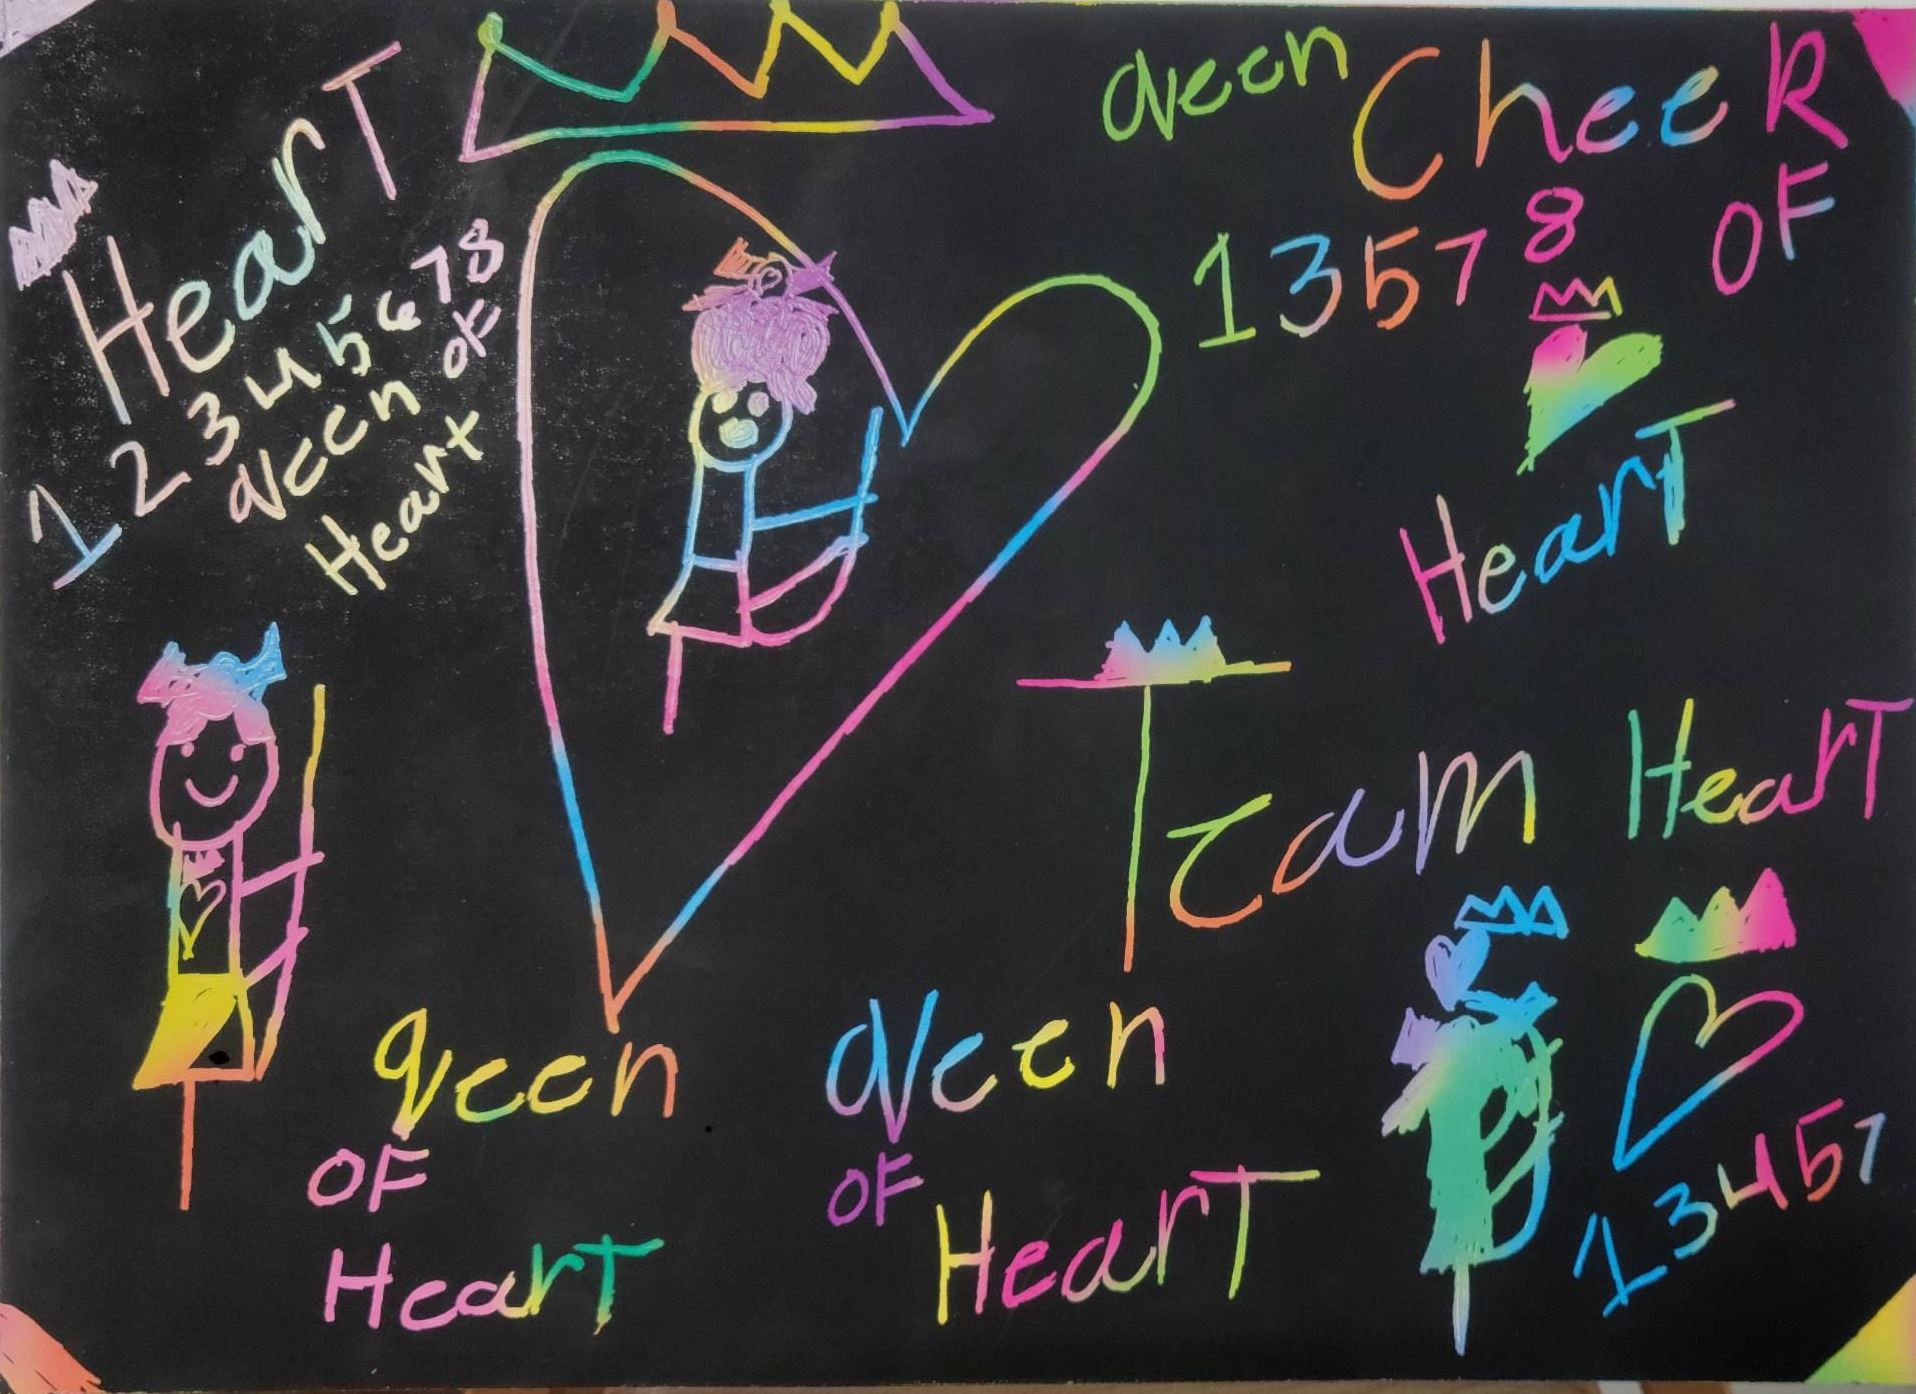 HearT
1 2 3 4 5 6 7 8
Qveen OF
Heart
Qveen CheeR
1 3 5 7 8 OF
HearT
Team HearT
1 3 4 5 7
qveen
OF
HearT
Qveen
OF
HearT